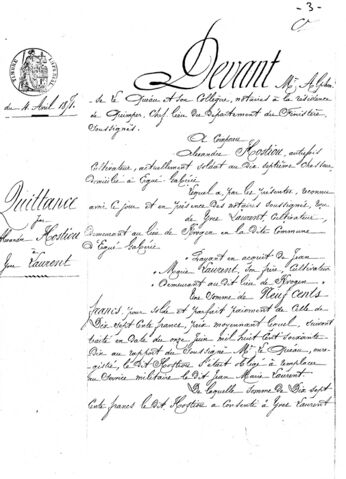 - 3 -
Devant Me Alphon-
se Le Quéau et son Collègue, notaires à la résidence
de Quimper, Chef lieu du Département du Finistère,
soussignés.
A comparu
Alexandre Hostiou, autrefois
cultivateur, actuellement soldat au dix septième chasseurs
domicilié à Ergué Gabéric
Lequel a, par les présentes, reconnu
avoir ce jour et en présence des notaires soussignés, reçu
de Yves Laurent, cultivateur,
demeurant au lieu de Kvogen en la dite Commune
d'Ergué Gabéric
Payant en acquit de Jean
Marie Laurent, son frère, cultivateur
demeurant au dit lieu de Kvogen
La somme de Neuf Cents
francs, pour solde et parfait paiement de celle de
Dix sept Cents francs, prix moyennant lequel, suivant
traité en date du onze Juin mil huit cent soixante
dix au rapport du soussigné Me Le Quéau, enre-
gistré, le dit Hostiou s'était obligé à remplacer
au service militaire le dit Jean Marie Laurent.
De laquelle somme de Dix sept
Cents francs le dit Hostiou a consenti à Yves Laurent
du 4 Avril 187.
Quittance
par
Hostiou
à
Yves Laurent